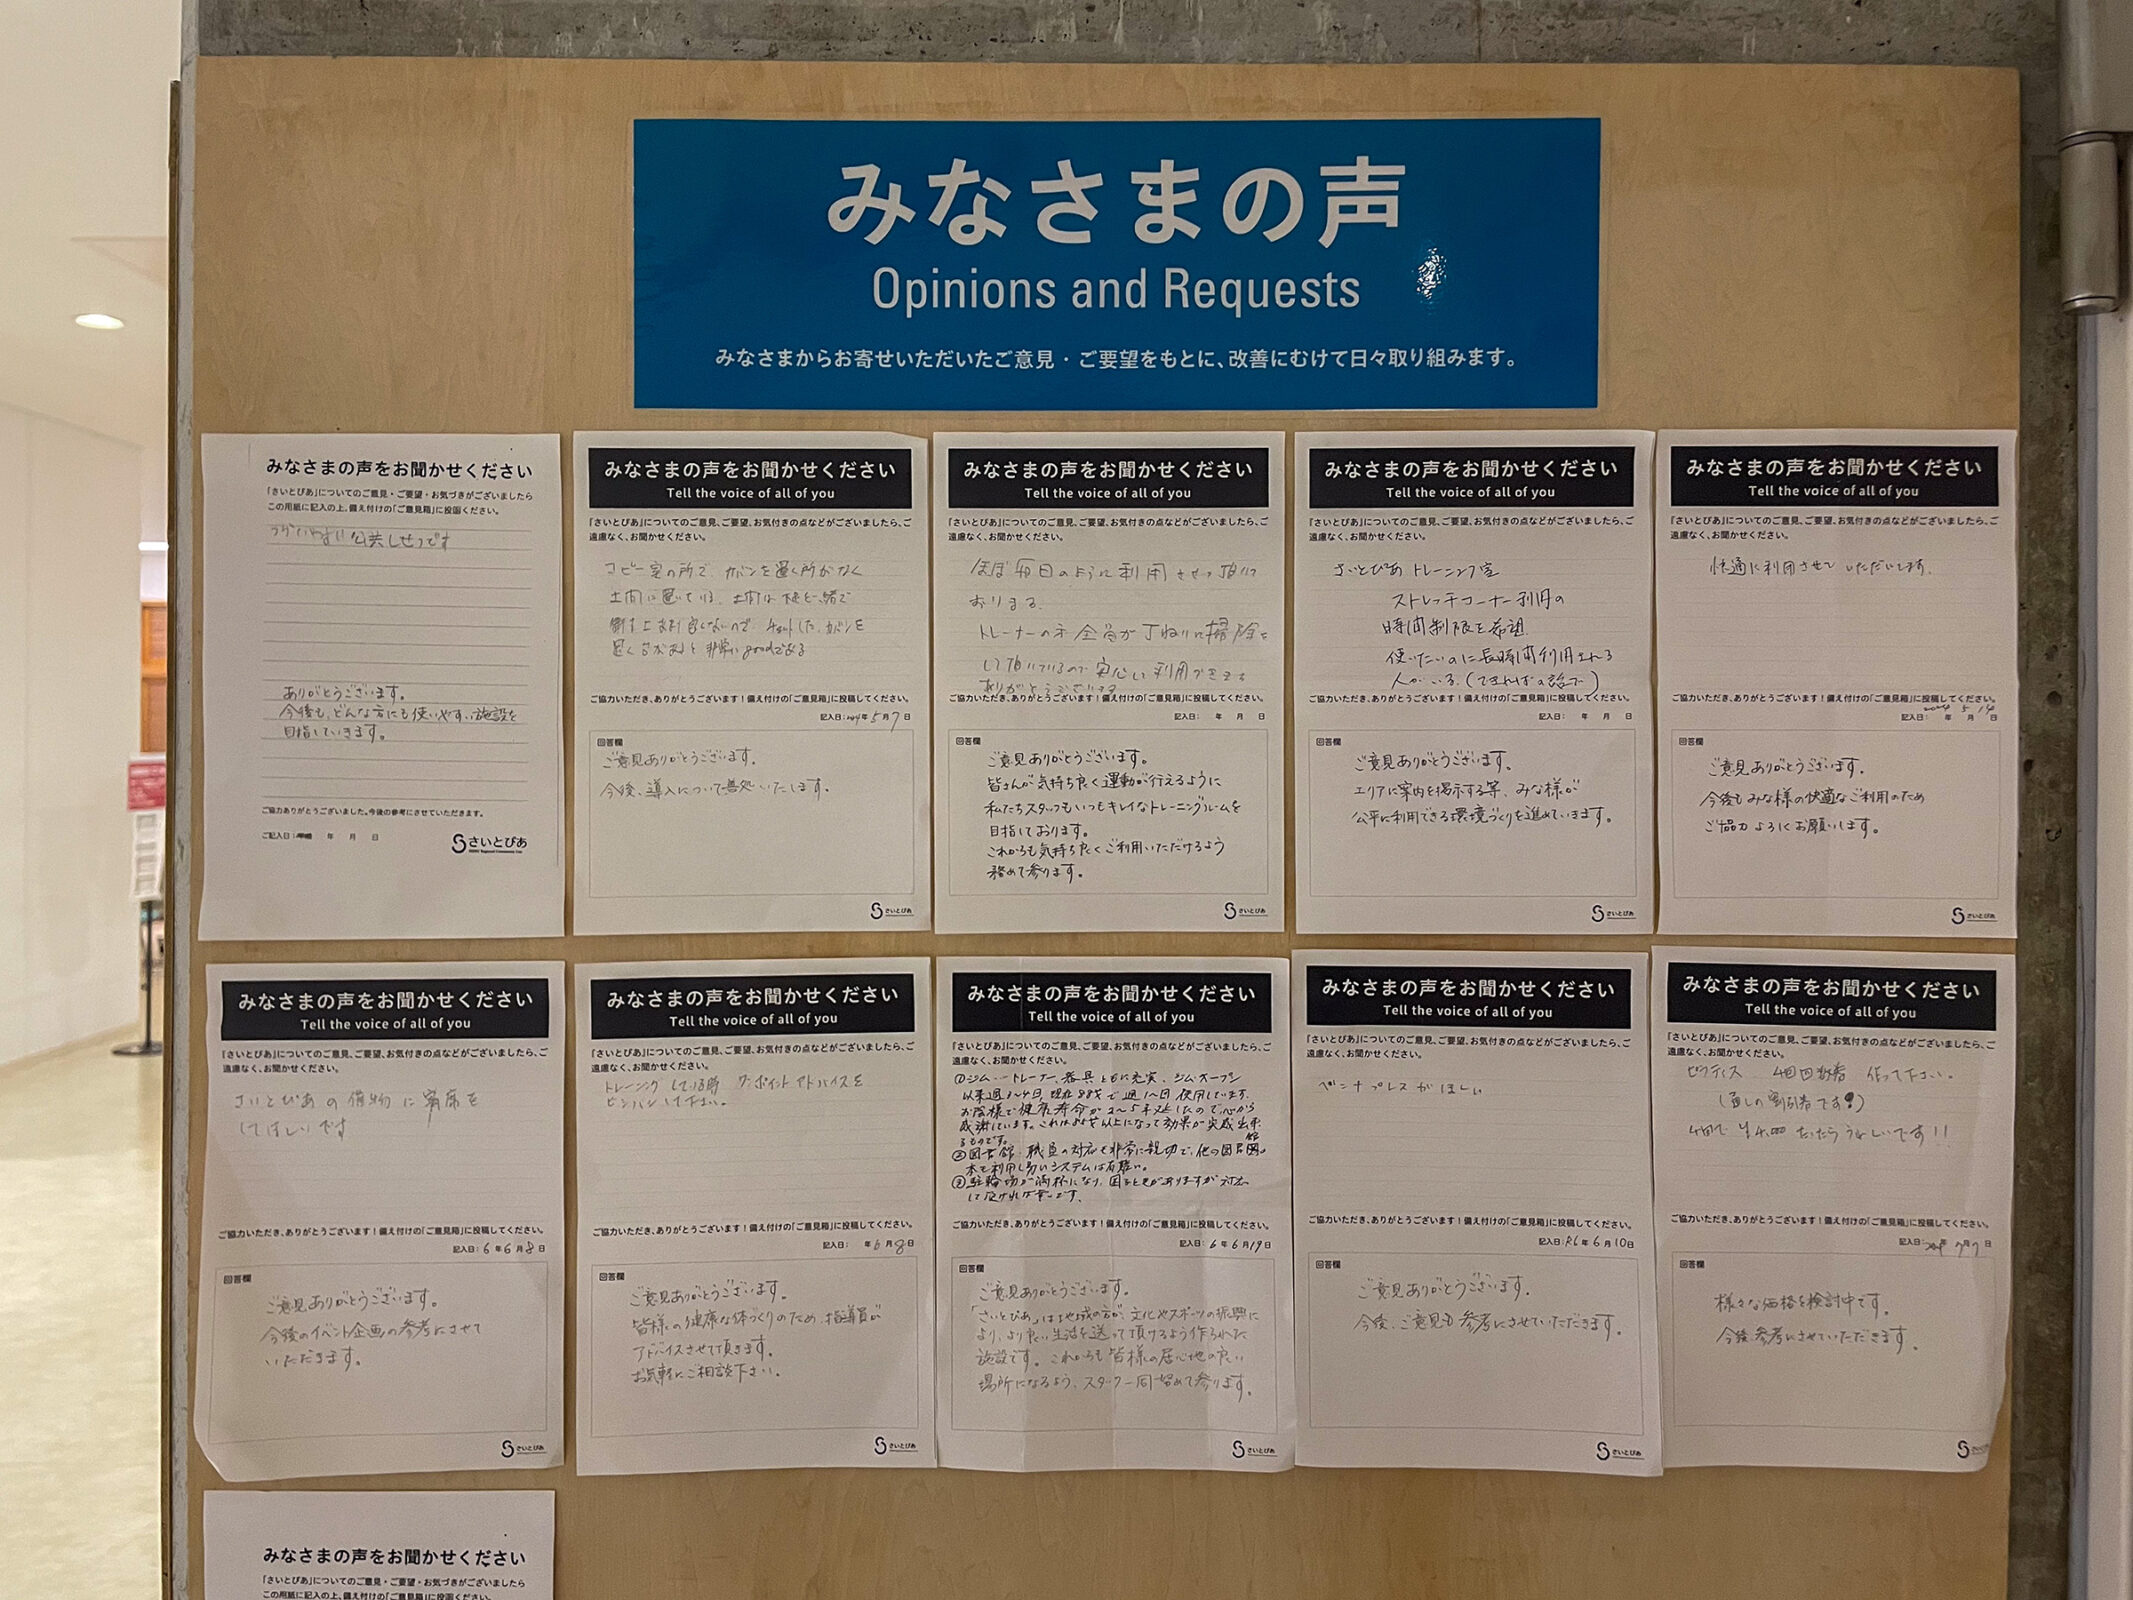 みなさまの声
Opinions and Requests
みなさまからお寄せいただいたご意見・ご要望をもとに、改善にむけて日々取り組みます。
みなさまの声をお聞かせください
「さいとぴあ」についてのご意見・ご要望・お気づきがございましたら
この用紙に記入の上、備え付けの「ご意見箱」に投函ください。
公共しせつです
ありがとうございます。
今後も、どんな方にも使いやすい施設を
目指していきます。
ご協力ありがとうございました。今後の参考にさせていただきます。
ご記入日: 年 月 日
さいとぴあ
みなさまの声をお聞かせください
Tell the voice of all of you
「さいとぴあ」についてのご意見、ご要望、お気付きの点などがございましたら、ご
遠慮なく、お聞かせください。
コピー室の所で、カバンを置く所がなく
土間に置いている。土間は
カバンを
置く台があると非常にgoodである
ご協力いただき、ありがとうございます！備え付けの「ご意見箱」に投稿してください。
記入日: 年5月7日
回答欄
ご意見ありがとうございます。
今後、導入について善処いたします。
さいとぴあ
みなさまの声をお聞かせください
Tell the voice of all of you
「さいとぴあ」についてのご意見、ご要望、お気付きの点などがございましたら、ご
遠慮なく、お聞かせください。
ほぼ毎日のように利用させて頂いて
おります。
トレーナーの方全員が丁ねいに掃除を
して頂いているので安心して利用できます
ありがとうございます
ご協力いただき、ありがとうございます！備え付けの「ご意見箱」に投稿してください。
記入日: 年 月 日
回答欄
ご意見ありがとうございます。
皆さんが気持ち良く運動が行えるように
私たちスタッフもいつもキレイなトレーニングルームを
目指しております。
これからも気持ち良くご利用いただけるよう
務めて参ります。
さいとぴあ
みなさまの声をお聞かせください
Tell the voice of all of you
「さいとぴあ」についてのご意見、ご要望、お気付きの点などがございましたら、ご
遠慮なく、お聞かせください。
さいとぴあ トレーニング室
ストレッチコーナー利用の
時間制限を希望
使いたいのに長時間利用される
人がいる。(できればの話で)
ご協力いただき、ありがとうございます！備え付けの「ご意見箱」に投稿してください。
記入日: 年 月 日
回答欄
ご意見ありがとうございます。
エリアに案内を掲示する等、みな様が
公平に利用できる環境づくりを進めていきます。
さいとぴあ
みなさまの声をお聞かせください
Tell the voice of all of you
「さいとぴあ」についてのご意見、ご要望、お気付きの点などがございましたら、ご
遠慮なく、お聞かせください。
快適に利用させていただいてます。
ご協力いただき、ありがとうございます！備え付けの「ご意見箱」に投稿してください。
2024 5 14
記入日: 年 月 日
回答欄
ご意見ありがとうございます。
今後もみな様の快適なご利用のため
ご協力よろしくお願いします。
さいとぴあ
みなさまの声をお聞かせください
Tell the voice of all of you
「さいとぴあ」についてのご意見、ご要望、お気付きの点などがございましたら、ご
遠慮なく、お聞かせください。
さいとぴあの催物に寄席を
してほしいです
ご協力いただき、ありがとうございます！備え付けの「ご意見箱」に投稿してください。
記入日: 6年6月8日
回答欄
ご意見ありがとうございます。
今後のイベント企画の参考にさせて
いただきます。
さいとぴあ
みなさまの声をお聞かせください
Tell the voice of all of you
「さいとぴあ」についてのご意見、ご要望、お気付きの点などがございましたら、ご
遠慮なく、お聞かせください。
トレーニングしている時 ワンポイントアドバイスを
ビシバシして下さい。
ご協力いただき、ありがとうございます！備え付けの「ご意見箱」に投稿してください。
記入日: 年6月8日
回答欄
ご意見ありがとうございます。
皆様の健康な体づくりのため、指導員が
アドバイスさせて頂きます。
お気軽にご相談下さい。
さいとぴあ
みなさまの声をお聞かせください
Tell the voice of all of you
「さいとぴあ」についてのご意見、ご要望、お気付きの点などがございましたら、ご
遠慮なく、お聞かせください。
①ジム…トレーナー、器具ともに充実、ジムオープン
以来週3〜4日、現在88才で週1〜2日使用しています。
お陰様で健康寿命が2〜5年延したので心から
感謝しています。これは 以上になって効果が実感出来
るものです。
②図書館…職員の対応も非常に親切で、他の図書館の
本も利用し易いシステムは有難い。
③駐輪場が満杯になり、困るときがありますが対応
して頂ければ幸いです。
ご協力いただき、ありがとうございます！備え付けの「ご意見箱」に投稿してください。
記入日: 6年6月19日
回答欄
ご意見ありがとうございます。
「さいとぴあ」は地域の方が、文化やスポーツの振興に
より、より良い生活を送って頂けるよう作られた
施設です。これからも皆様の居心地の良い
場所になるよう、スタッフ一同努めて参ります。
さいとぴあ
みなさまの声をお聞かせください
Tell the voice of all of you
「さいとぴあ」についてのご意見、ご要望、お気付きの点などがございましたら、ご
遠慮なく、お聞かせください。
ベンチプレスがほしい
ご協力いただき、ありがとうございます！備え付けの「ご意見箱」に投稿してください。
記入日: R6年6月10日
回答欄
ご意見ありがとうございます。
今後、ご意見も参考にさせていただきます。
さいとぴあ
みなさまの声をお聞かせください
Tell the voice of all of you
「さいとぴあ」についてのご意見、ご要望、お気付きの点などがございましたら、ご
遠慮なく、お聞かせください。
ピラティス 4回回数券 作って下さい。
(通しの割引券です!)
4回で ¥4,000 だったらうれしいです!!
ご協力いただき、ありがとうございます！備え付けの「ご意見箱」に投稿してください。
記入日: 年7月7日
回答欄
様々な価格を検討中です。
今後、参考にさせていただきます。
みなさまの声をお聞かせください
「さいとぴあ」についてのご意見・ご要望・お気づきがございましたら
この用紙に記入の上、備え付けの「ご意見箱」に投函ください。